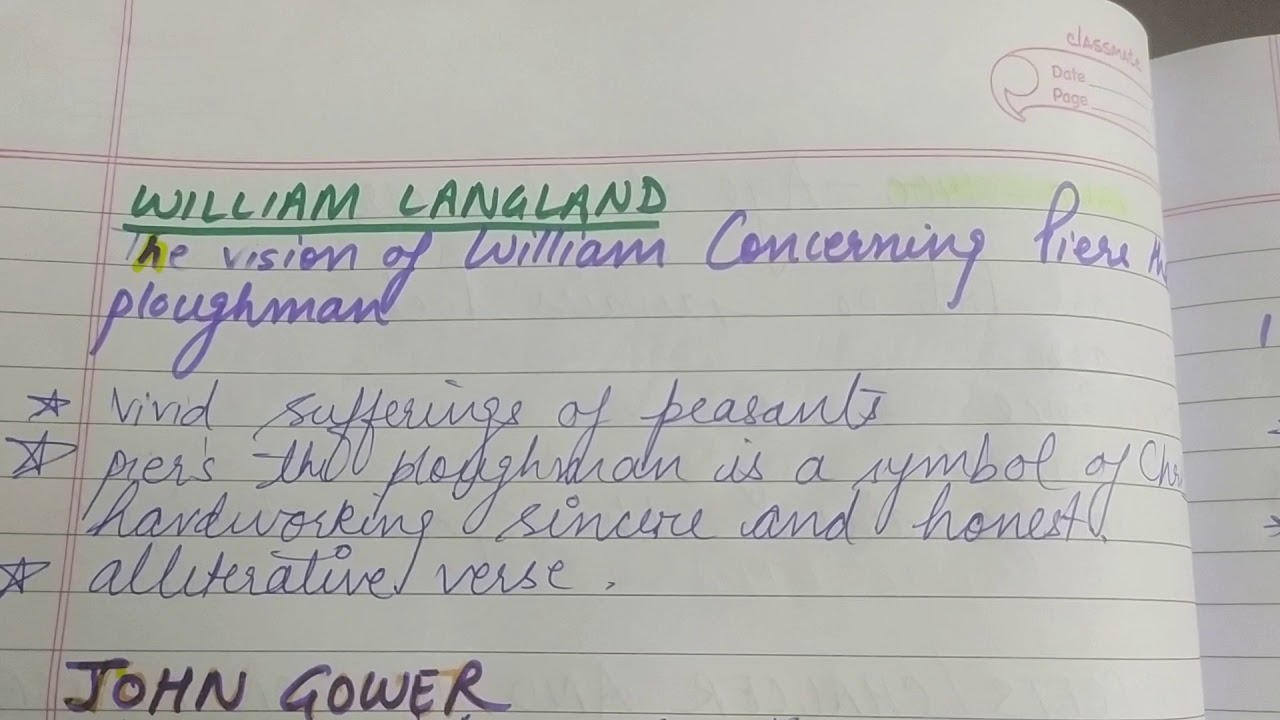 classmate
Date
Page
WILLIAM LANGLAND
The vision of William Concerning Piers the
ploughman
vivid sufferings of peasants
pier's the ploughman is a symbol of Chr
hardworking sincere and honest.
alliterative verse.
JOHN GOWER